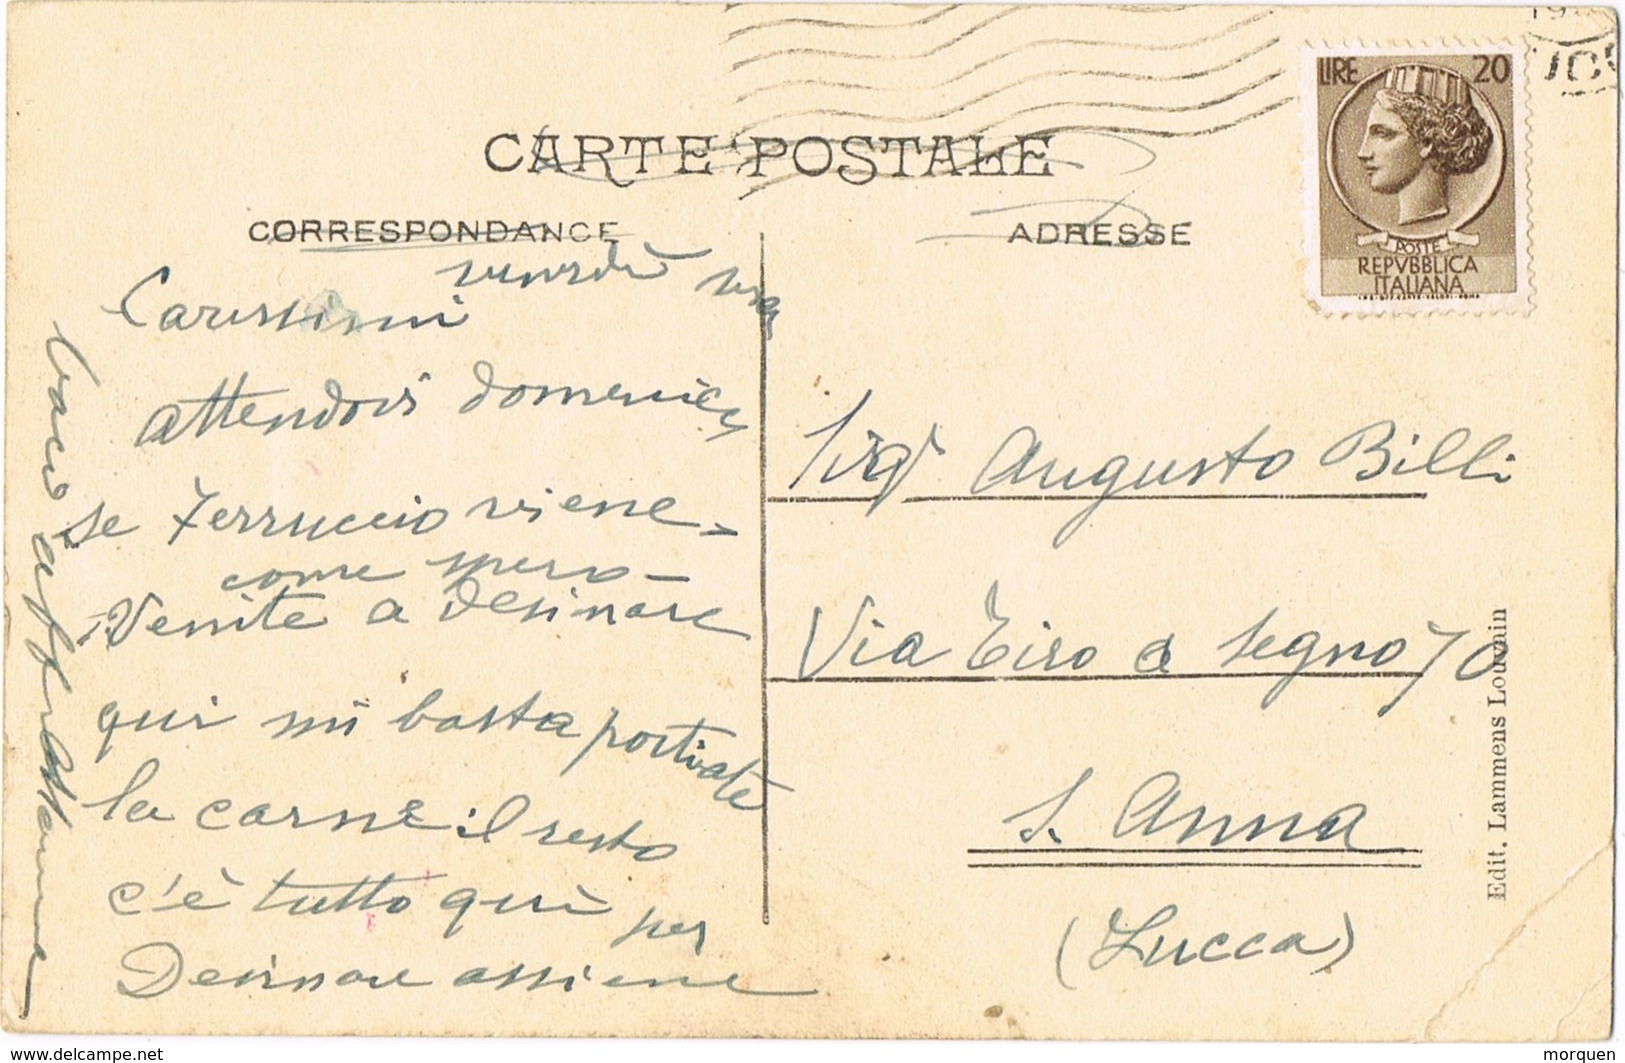 LIRE 20
POSTE
REPVBBLICA
ITALIANA
CARTE POSTALE
CORRESPONDANCE
ADRESSE
venerdì sera
Carissimi
attendovi domenica
se Ferruccio viene
come spero –
Venite a desinare
qui mi basta portiate
la carne il resto
c'è tutto qui per
Desinare assieme
Sigr Augusto Billi
Via Tiro a Segno 70
S. Anna
(Lucca)
Edit. Lammens Louvain
delcampe.net
morquen